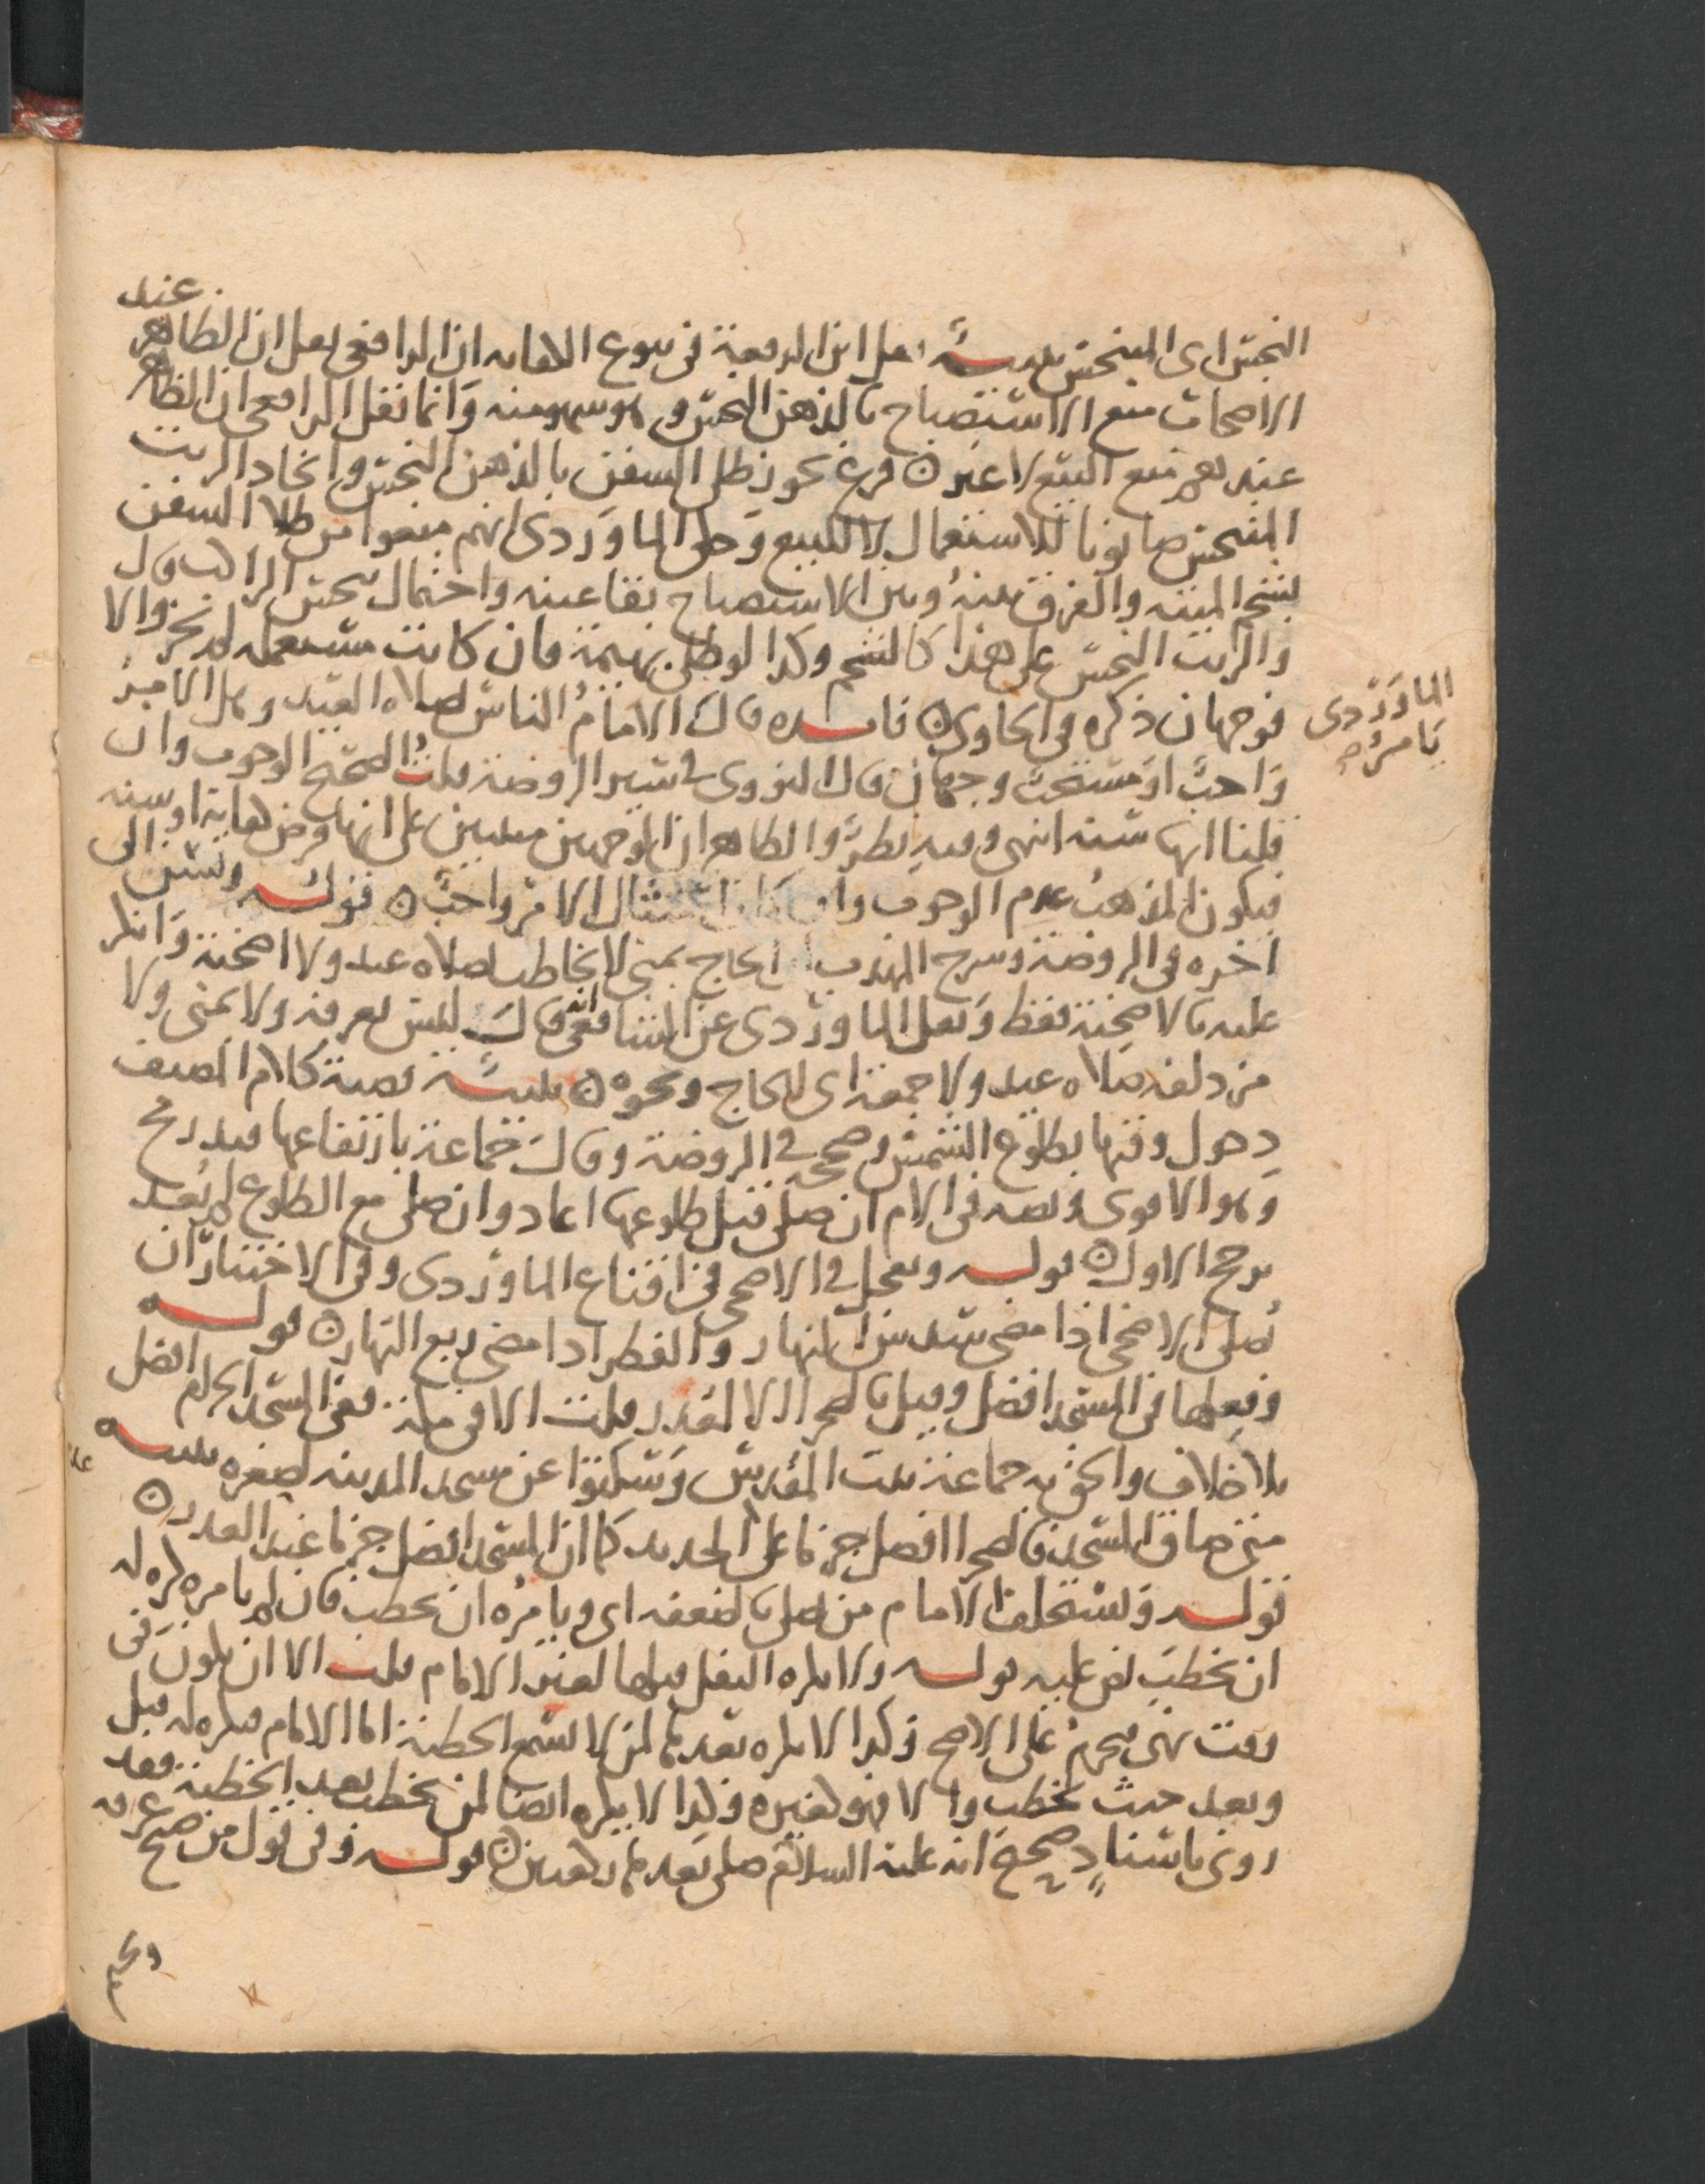 عند
النجس اى المتنجس تنبيه نقل ابن الرفعة فى بيوع الكفايه ان الرافعى نقل ان الظاهر
الاصحاب منع الاستصباح بالدهن النجس وهو سهو منه وانما نقل الرافعى ان الظاهر
عندهم منع البيع لا غير ن فرع يجوز طلى السفن بالدهن النجس واتخاد الزيت
المتنجس صابونا للاستعمال لا للبيع وحكى الماوردى انهم منعوا من طلا السفن
بشحم الميته والفرق بينه وبين الاستصباح بقا عينه واحتمال تنجس الراكب قال
والزيت النجس على هذا كالشحم وكذا لو طلى بهيمة فان كانت مستعمله لم يجز والا
فوجهان ذكره فى الحاوى ن فايده قال الامام الناس لصلاه العيد وهل الامر
الماوردى
يامر صح
واجب او مستحب وجهان قال النووى فى سير الروضة قلت الصحيح الوجوب وان
قلنا انها سنه انتهى وفيه نظر والظاهر ان الوجهين مبنيين على انها فرض كفاية او سنه
فيكون المذهب عدم الوجوب وان كان امتثال الامر واجب ن قوله ويسن الى
اخره فى الروضة وشرح المهذب الحاج بمنى لا يخاطب بصلاه عيد ولا اضحية وانكر
عليه بالاضحية فقط ونقل الماوردى عن الشافعى انه قال ليس بعرفه ولا بمنى ولا
مزدلفه صلاه عيد ولا جمعة اى للحاج ونحوه ن تنبيه قضية كلام المصنف
دخول وقتها بطلوع الشمس وصححه فى الروضة وقال جماعة بارتفاعها قيد رمح
وهو الاقوى ونصه فى الام ان صلى قبل طلوعها اعاد وان صلى مع الطلوع لم يعد
يرجح الاول ن قوله ويعجل فى الاضحى فى اقناع الماوردى وفى الاختيار ان
يصلى الاضحى اذا مضى سدس النهار والفطر اذا مضى ربع النهار ن قوله
وفعلها فى المسجد افضل وقيل بالصحرا الا لعذر قلت الا فى مكة ففى المسجد الحرام افضل
بلا خلاف والحق به جماعة بيت المقدس وسكتوا عن مسجد المدينه لصغره تنبيه
متى ضاق المسجد فالصحرا افضل جزما على الجديد كما ان المسجد افضل جزما عند العذر ن
قوله ويستخلف الامام من يصلى بالضعفه اى ويامره ان يخطب فان لم يامره كره له
ان يخطب نص عليه قوله ولا يكره النفل قبلها لغير الامام قلت الا ان يكون فى
وقت نهى فيحرم على الاصح وكذا لا يكره بعدها لمن لا يسمع الخطبة اما الامام فيكره له قبل
وبعد حيث يخطب والا فهو كغيره وكذا لا يكره ايضا لمن يخطب بعد الخطبة فقد
روى باسناد صحيح انه عليه السلام صلى بعدها ركعتين ن قوله وفى قول من صبح عرفه